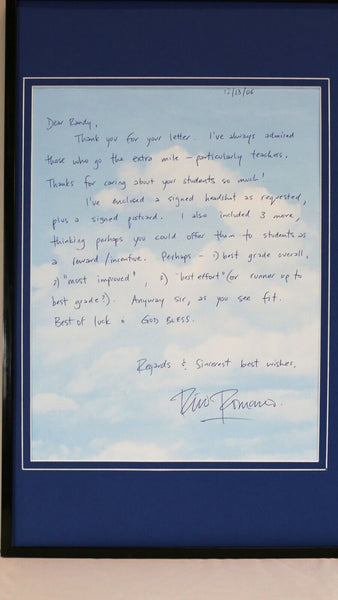 12/13/06
Dear Randy,
Thank you for your letter. I've always admired
those who go the extra mile – particularly teachers.
Thanks for caring about your students so much!
I've enclosed a signed headshot as requested,
plus a signed postcard. I also included 3 more,
thinking perhaps you could offer them to students as
a reward/incentive. Perhaps – 1) best grade overall,
2) "most improved", 3) "best effort" (or runner up to
best grade?). Anyway sir, as you see fit.
Best of luck & GOD BLESS.
Regards & Sincerest best wishes,
Rino Romano.